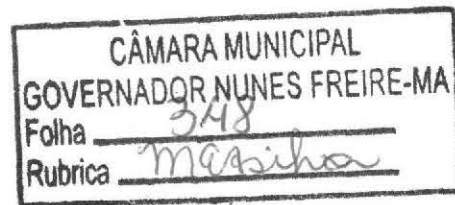 CÂMARA MUNICIPAL
GOVERNADOR NUNES FREIRE-MA
Folha 348
Rubrica